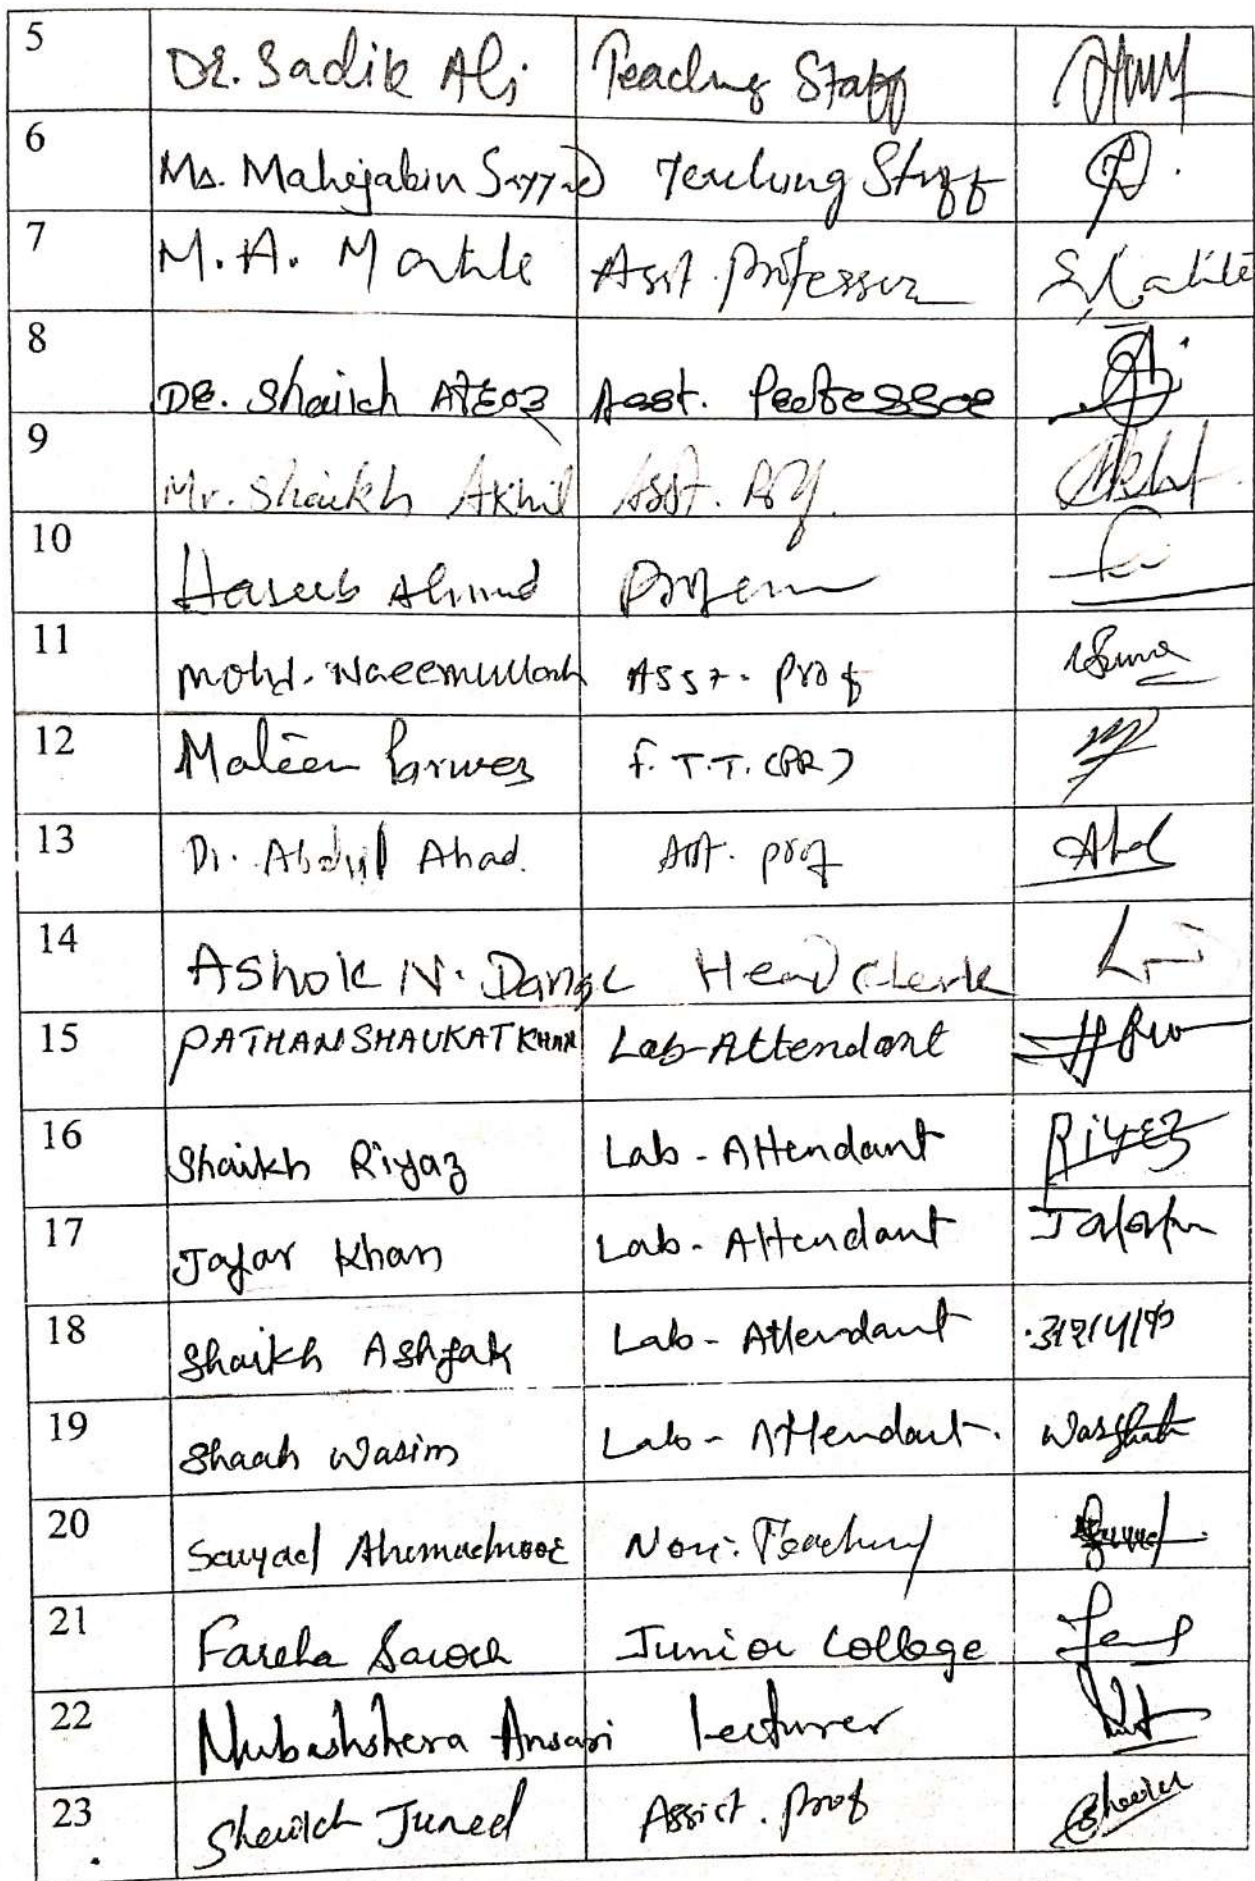 5 Dr. Sadik Ali Teaching Staff
6 Ms. Mahejabin Sayyad Teaching Staff
7 M. A. Asst. Professor
8 DR. Shaikh Asst. Professor
9 Mr. Shaikh Akhil Asst. Prof.
10 Haseeb Ahmed Professor
11 Mohd. Naeemullah Asst. Prof
12 Mateen Parwez F. T.T. (PR)
13 Dr. Abdul Ahad. Asst. prof
14 Ashok N. Dange Head Clerk
15 PATHAN SHAUKAT KHAN Lab-Attendant
16 Shaikh Riyaz Lab-Attendant Riyaz
17 Jafar Khan Lab-Attendant
18 Shaikh Ashfak Lab-Attendant
19 Shaah Wasim Lab-Attendant.
20 Sayyad Non-Teaching
21 Fareha Junior College
22 Mubashshera Ansari Lecturer
23 Shaikh Juned Assist. Prof